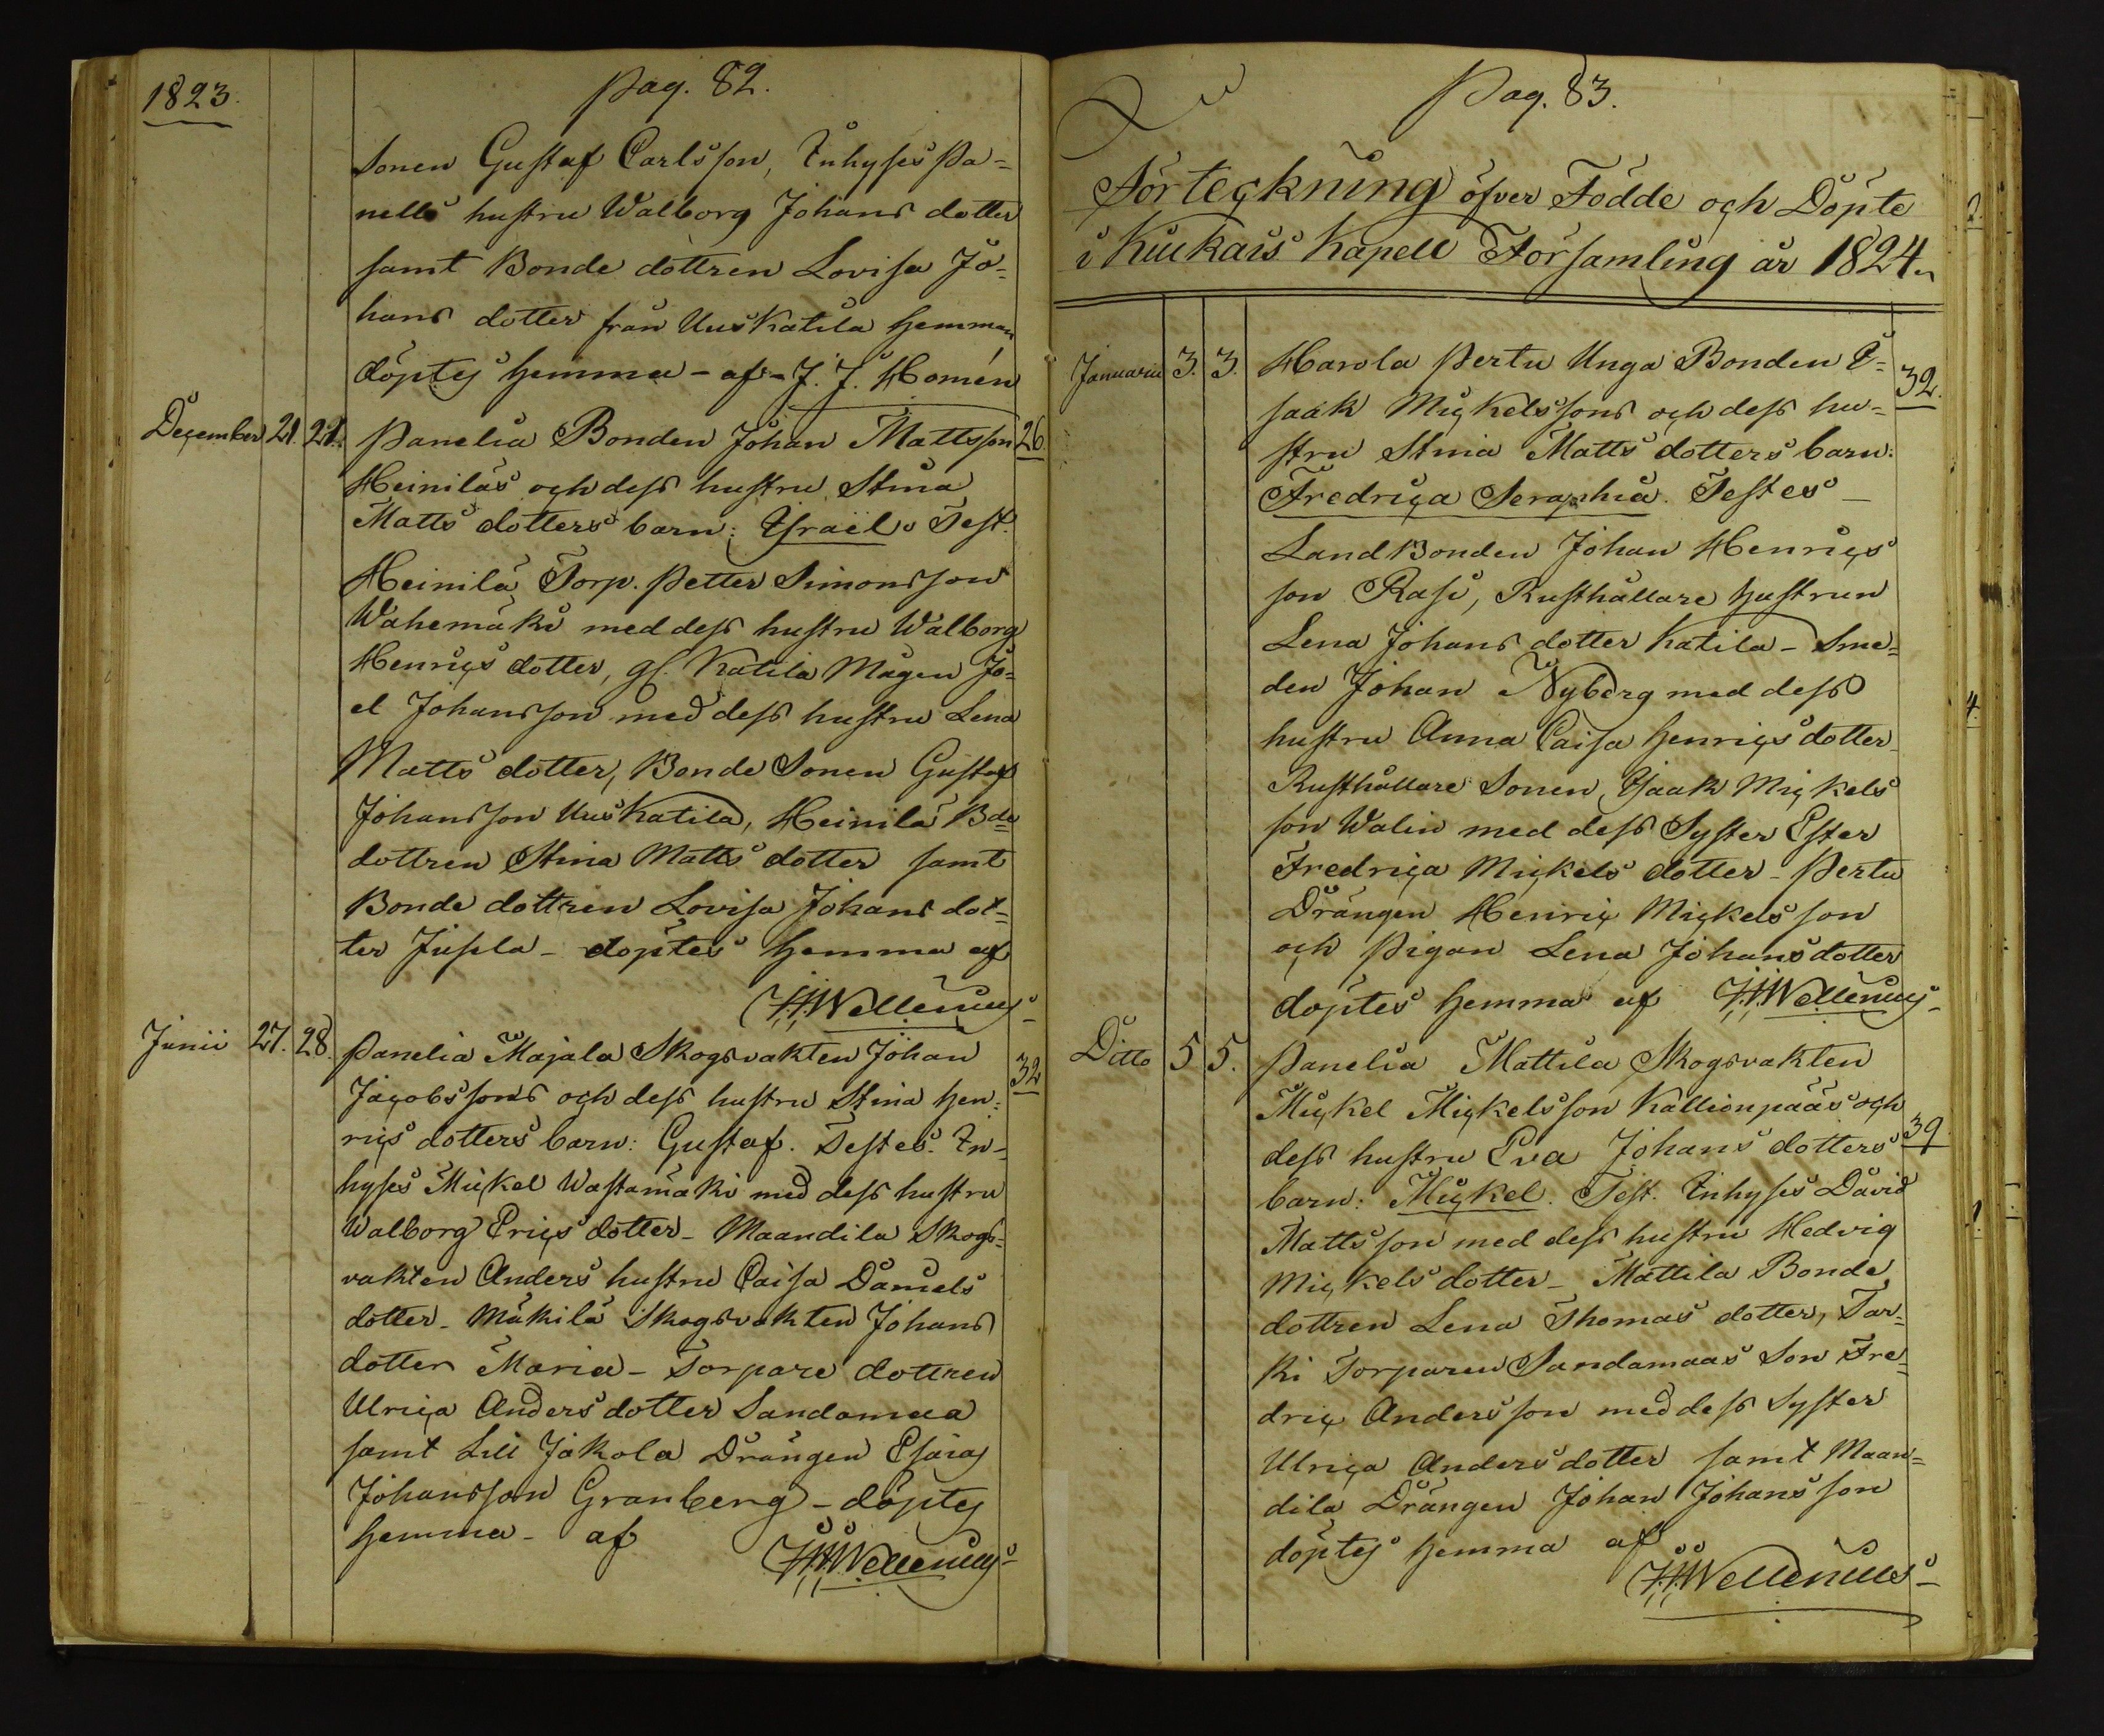 1823.
Pag. 82.
Sonen Gustaf Carlsson, Inhyses Pa=
nells hustru Walborg Johans dotter
samt Bonde dottren Lovisa Jo=
hans dotter från Uuskatila hemman
döptes hemma - af - J. J. Homén
December 21. 21. Panelia Bonden Johan Mattsson 26
Heiniläs och dess hustru Stina
Matts dotters barn: Israël. Test.
Heinilä Torp. Petter Simonsson
Wahemäki med dess hustru Walborg
Henrics dotter, gl. Katila Mågen Jo=
el Johansson med dess hustru Lena
Matts dotter, Bonde Sonen Gustaf
Johansson Uuskatila, Heinilä Bde
dottren Stina Matts dotter samt
Bonde dottren Lovisa Johans dot=
ter Jupla - döptes hemma af
J.H.Wellenius
Junii 27. 28. Panelia Majala Skogsvakten Johan
Jacobssons och dess hustru Stina Hen= 32
rics dotters barn: Gustaf. Testes. In=
hyses Mickel Wastamäki med dess hustru
Walborg Erics dotter - Maandila Skogs=
vakten Anders hustru Caisa Daniels
dotter - Mäkilä Skogsvakten Johans
dotter Maria - Torpare dottren
Ulrica Anders dotter Sandamaa
samt Lill Jakola Drängen Esaias
Johansson Granberg - döptes
hemma - af J.H.Wellenius
Pag. 83.
Förteckning öfver Födde och Döpte
i Kiukais Kapell Församling år 1824.
Januarii 3. 3. Harola Pertu Unga Bonden I=
saak Mickelssons och dess hu= 32.
stru Stina Matts dotters barn:
Fredrica Seraphia. Testes -
Landbonden Johan Henrics
son Rasi, Rusthållare hustrun
Lena Johans dotter Katila - Sme=
den Johan Nyberg med dess
hustru Anna Caisa Henrics dotter
Rusthållare Sonen, Isaak Mickels
son Walin med dess Syster Ester
Fredrica Mickels dotter - Pertu
Drängen Henric Mickelsson
och Pigan Lena Johans dotter
döptes hemma af J.H.Wellenius
Ditto 5 5. Panelia Mattila Skogsvakten
Mickel Mickelsson Kallionpääs och
dess hustru Eva Johans dotters 39.
barn: Mickel. Test. Inhyses David
Mattsson med dess hustru Hedvig
Mickels dotter - Mattila Bonde
dottren Lena Thomas dotter, Tar=
ki Torparen Sandamaas Son Fre=
dric Andersson med dess Syster
Ulrica Anders dotter samt Maan=
dila Drängen Johan Johansson
döptes hemma af
J.H.Wellenius